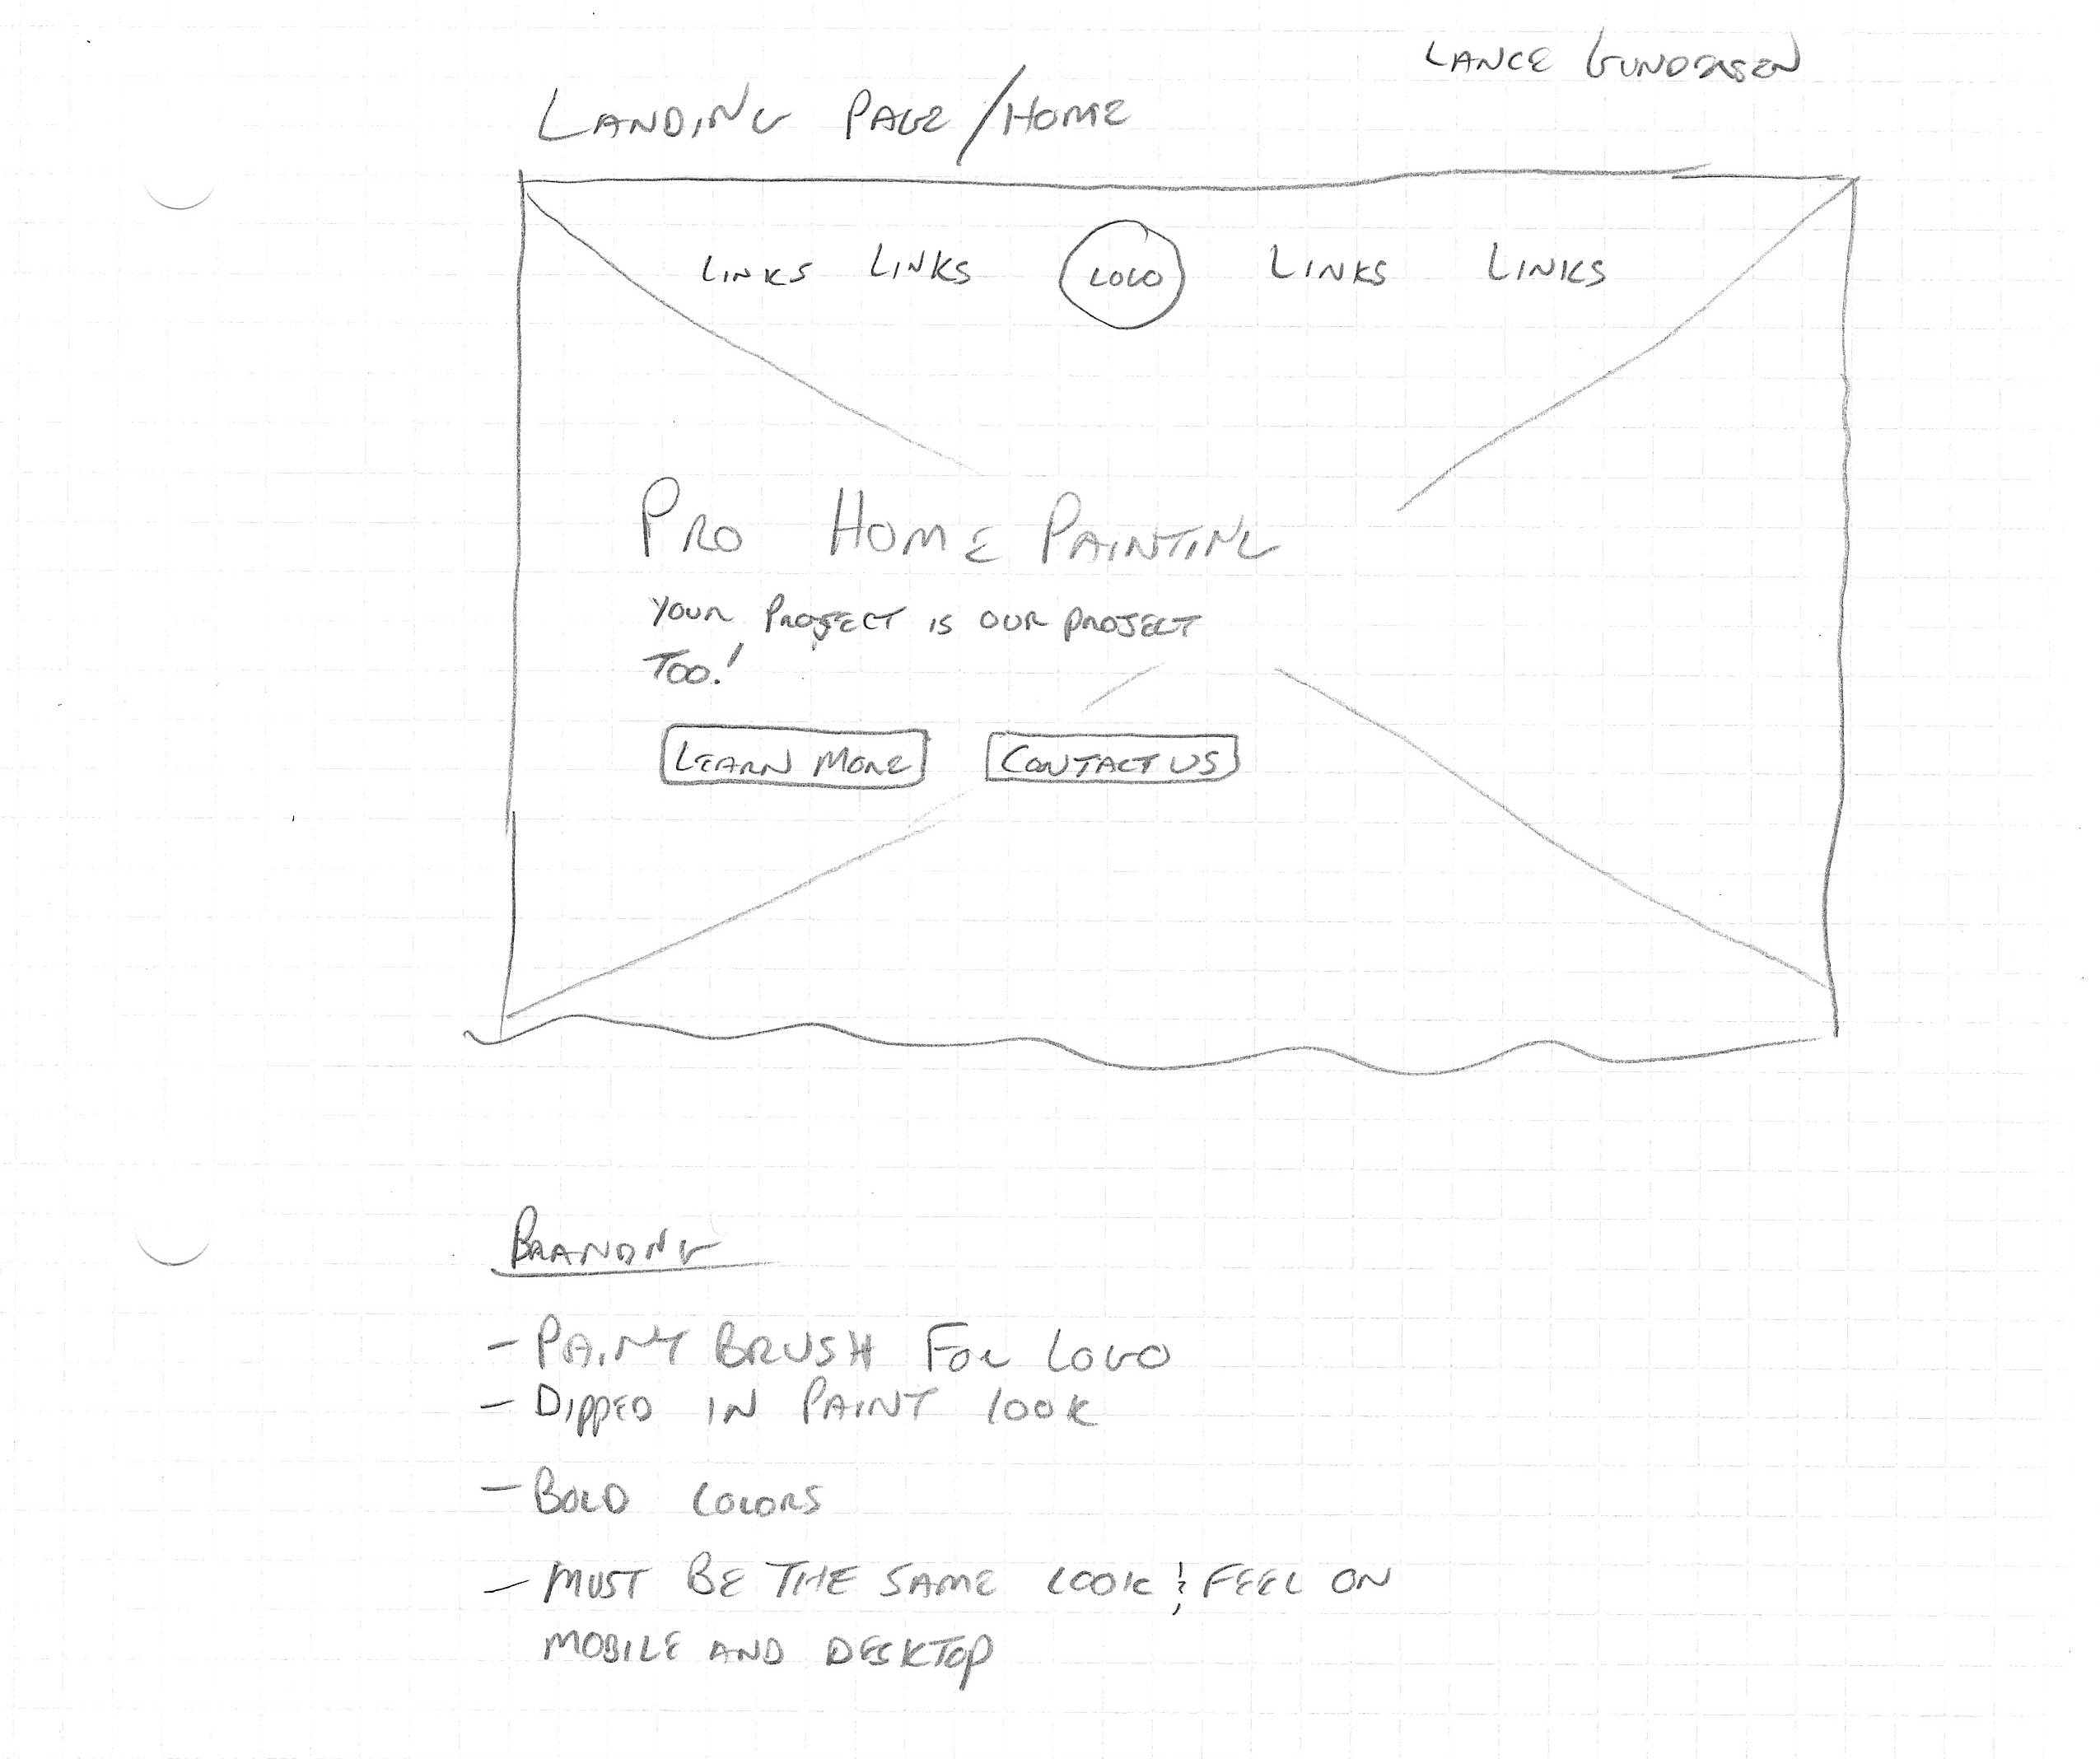 LANCE GUNDERSEN
LANDING PAGE/HOME
LINKS LINKS LOGO LINKS LINKS
PRO HOME PAINTING
YOUR PROJECT IS OUR PROJECT
TOO!
LEARN MORE CONTACT US
BRANDING
- PAINT BRUSH FOR LOGO
- DIPPED IN PAINT LOOK
- BOLD COLORS
- MUST BE THE SAME LOOK & FEEL ON
MOBILE AND DESKTOP